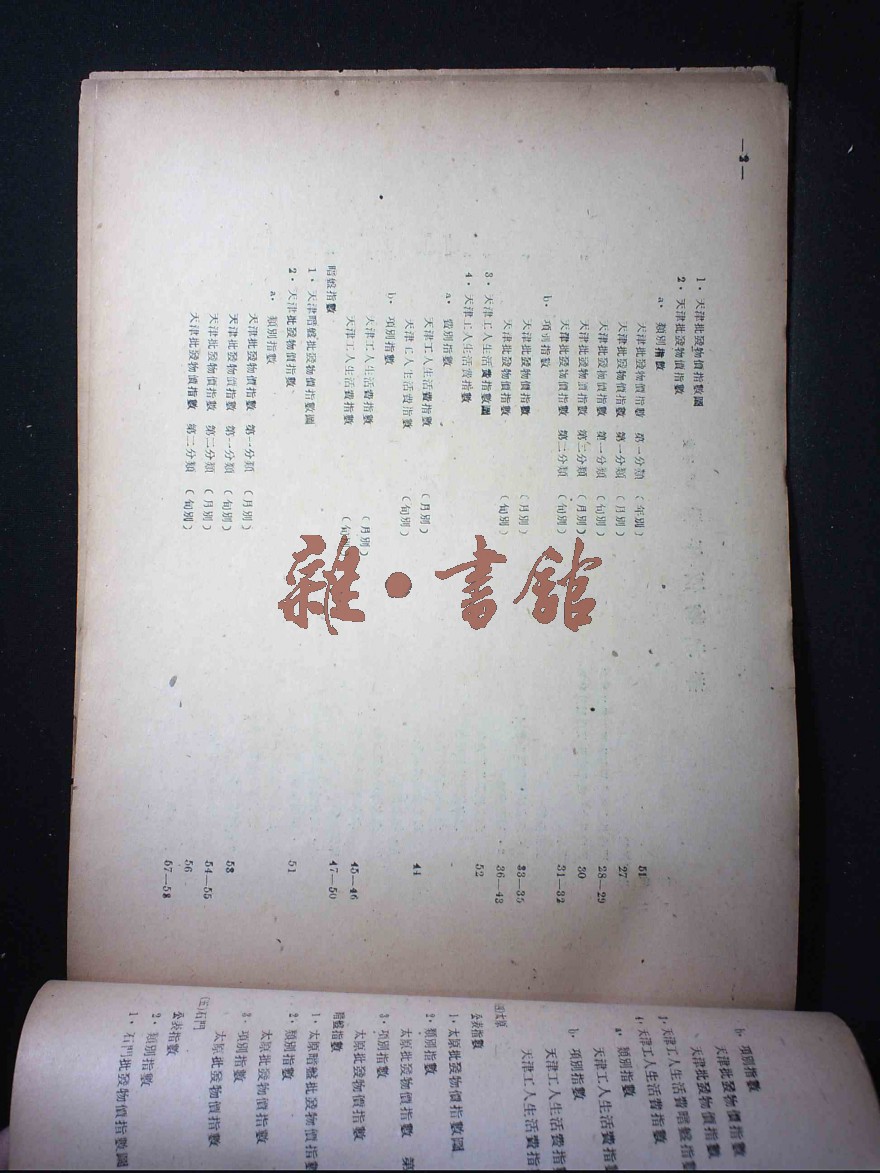 —2—
1．天津批發物價指數圖
2．天津批發物價指數
a．類別指數
天津批發物價指數 第一分類 （年別）
天津批發物價指數 第一分類 （月別）
天津批發物價指數 第一分類 （旬別）
天津批發物價指數 第二分類 （月別）
天津批發物價指數 第二分類 （旬別）
b．項別指數
天津批發物價指數 （月別）
天津批發物價指數 （旬別）
3．天津工人生活費指數圖
4．天津工人生活費指數
a．費別指數
天津工人生活費指數 （月別）
天津工人生活費指數 （旬別）
b．項別指數
天津工人生活費指數 （月別）
天津工人生活費指數 （旬
暗盤指數
1．天津暗盤批發物價指數圖
2．天津批發物價指數
a．類別指數
天津批發物價指數 第一分類 （月別）
天津批發物價指數 第一分類 （旬別）
天津批發物價指數 第二分類 （月別）
天津批發物價指數 第二分類 （旬別）
51
27
28—29
30
31—32
33—35
36—43
52
44
45—46
47—50
51
53
54—55
56
57—58
雜•書館
b．項別指數
天津批發物價指數
天津批發物價指數
3．天津工人生活費暗盤指數
4．天津工人生活費指數
a．類別指數
天津工人生活費指數
b．項別指數
天津工人生活費指
天津工人生活費指
太原
公表指數
1．太原批發物價指數圖
2．類別指數
太原批發物價指數 第
3．項別指數
太原批發物價指數
暗盤指數
1．太原暗盤批發物價指數
2．類別指數
太原批發物價指數
3．項別指數
太原批發物價指數
(五)石門
公表指數
2．類別指數
1．石門批發物價指數圖